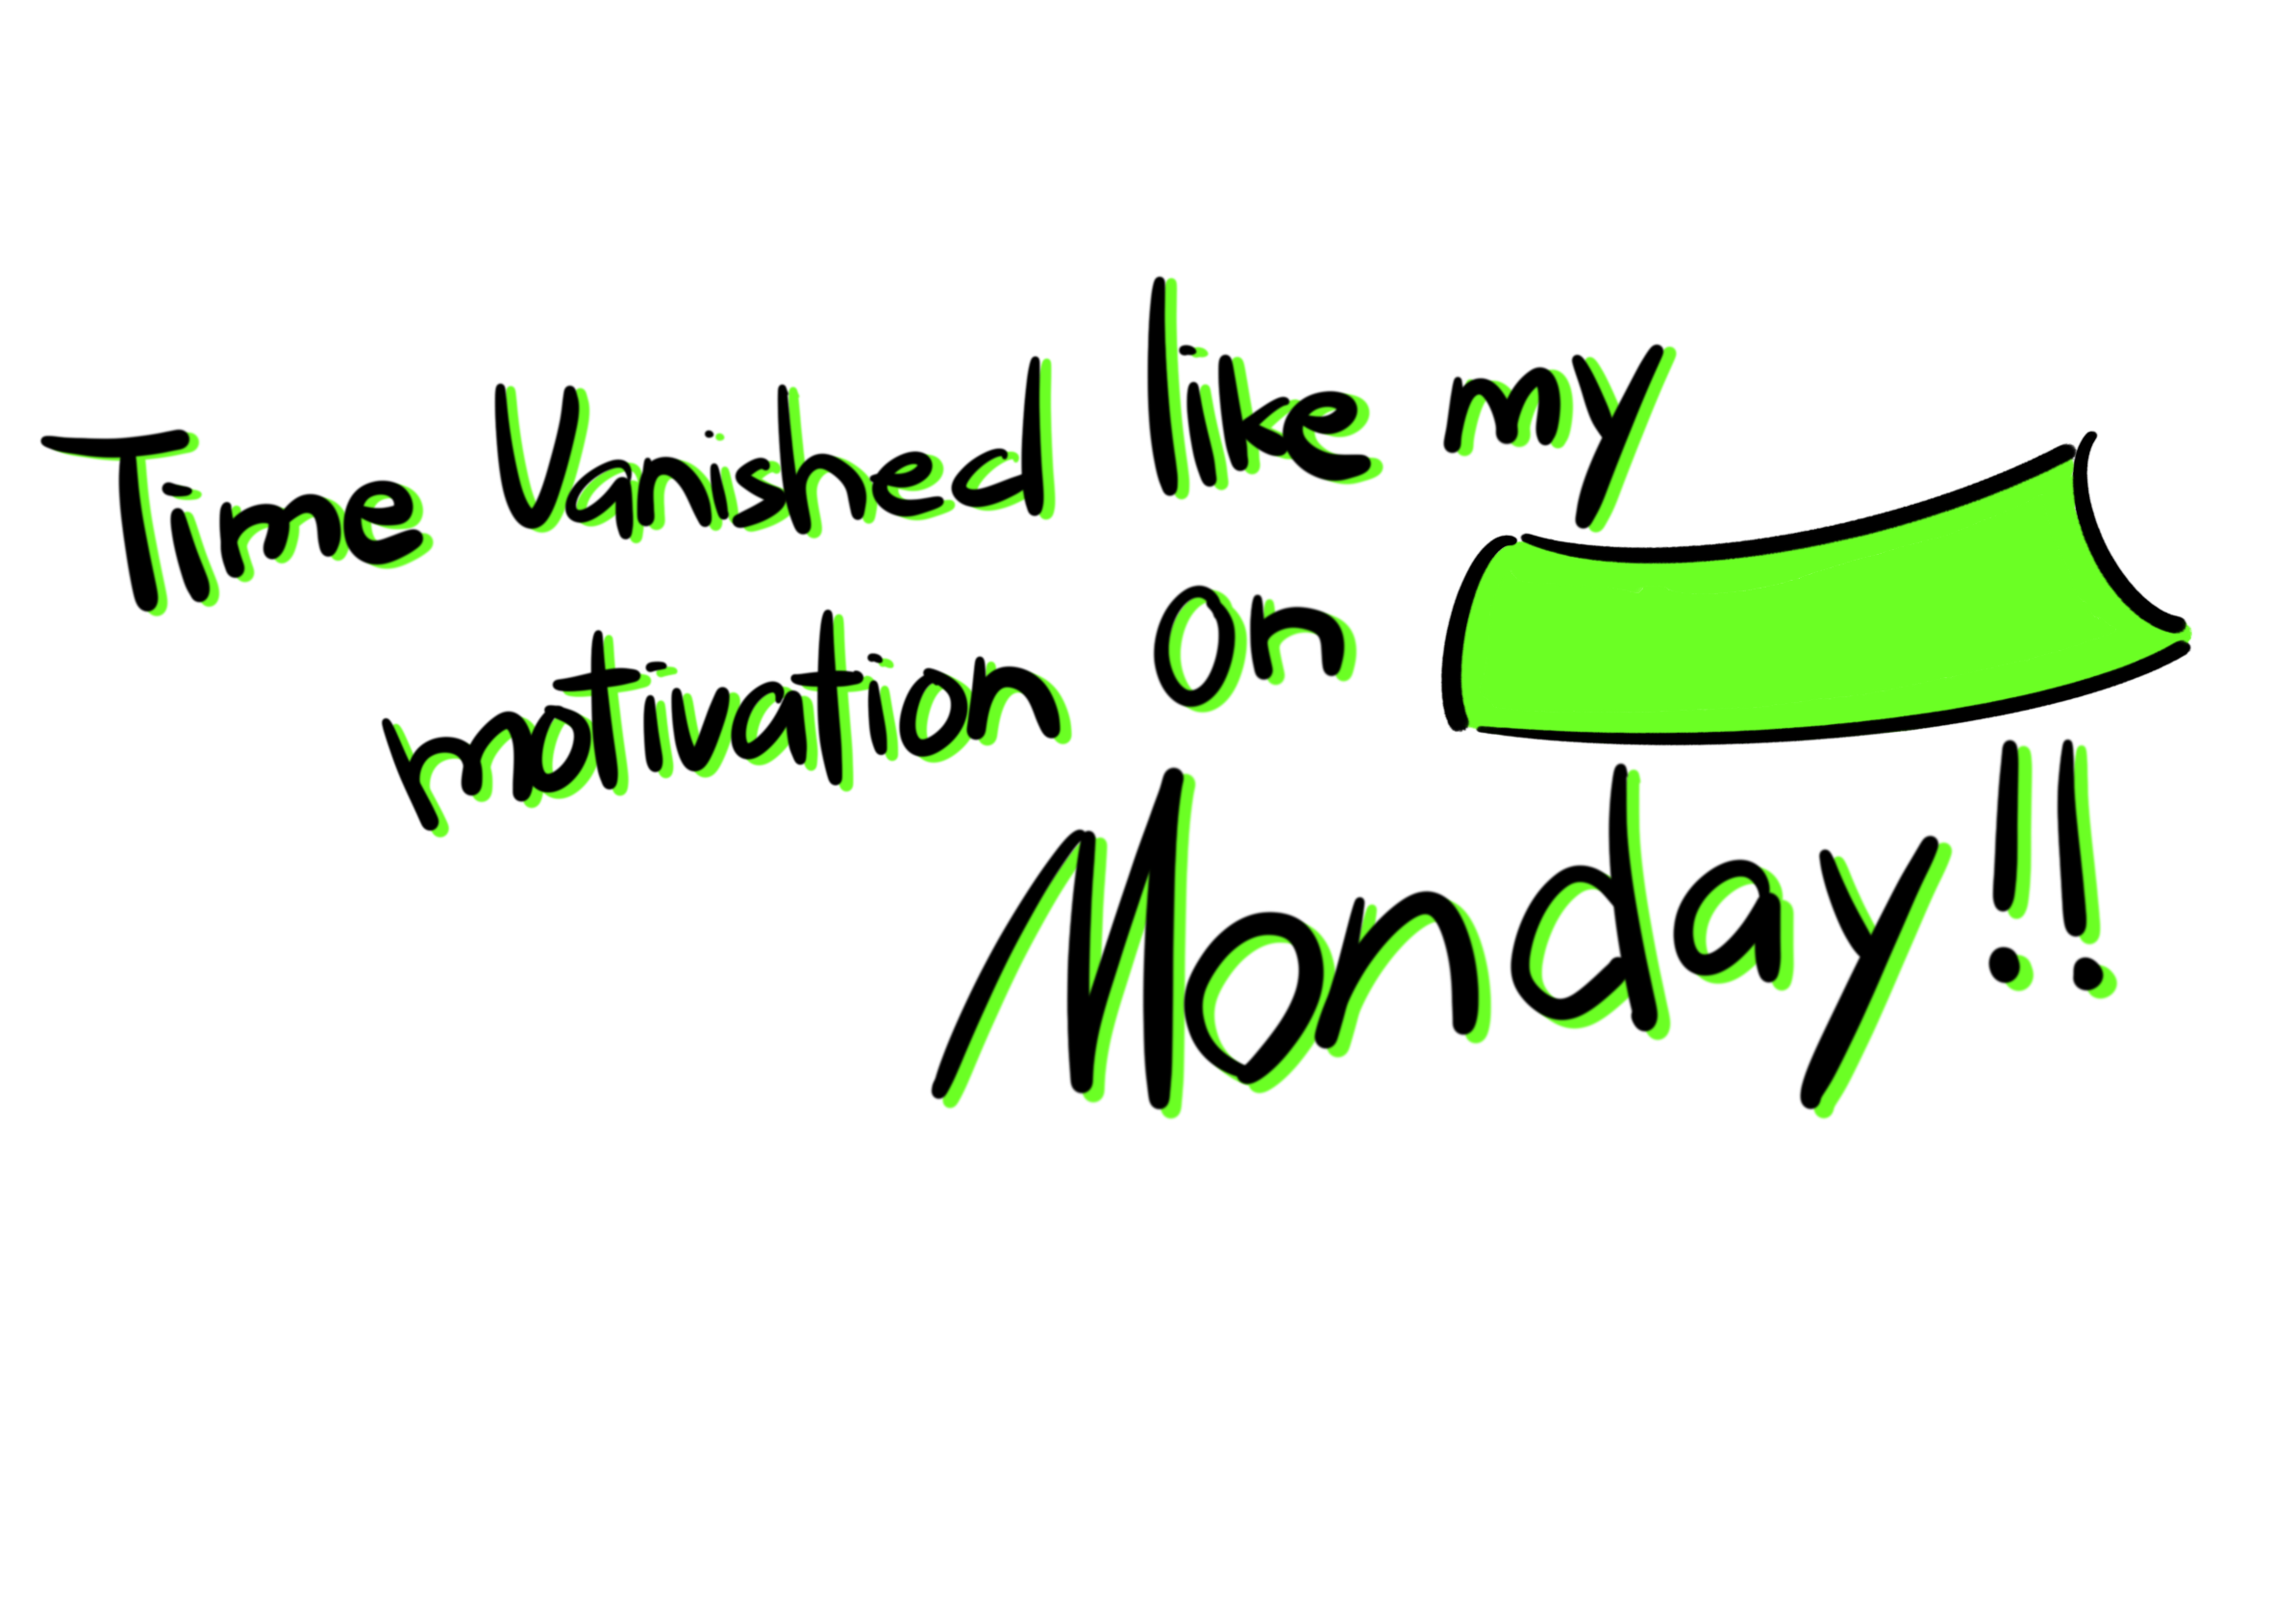 Time Vanished like my
motivation on
Monday!!